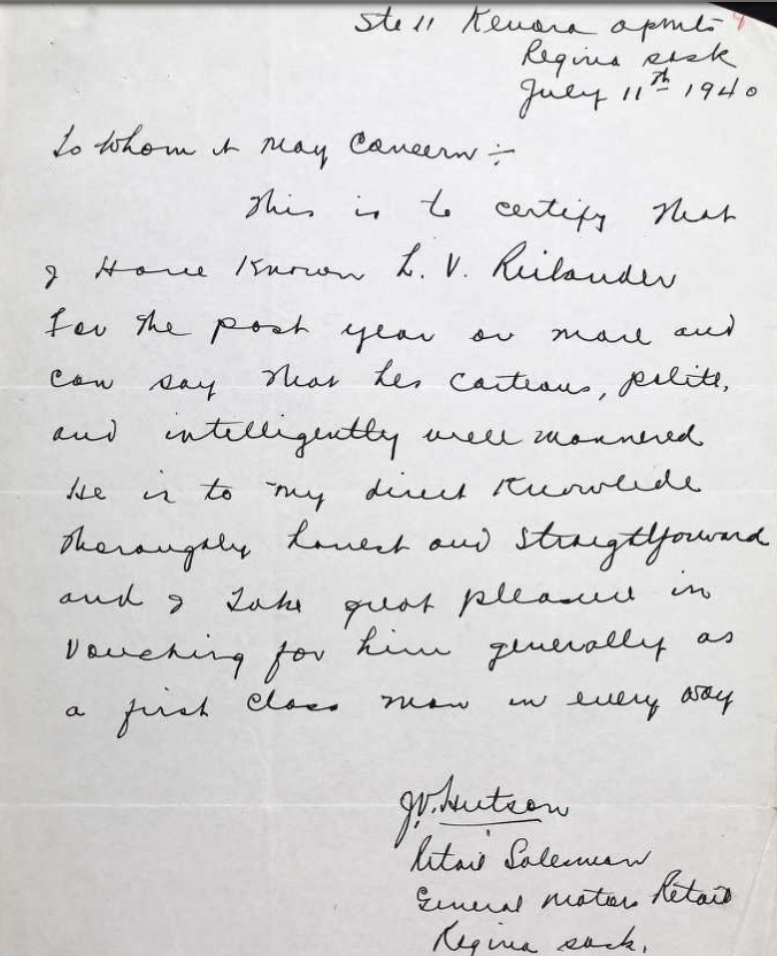 Ste 11 Kenora apmts 4
Regina sask
July 11th 1940
To Whom it May Concern :-
This is to certify that
I Have Known L. V. Reilander
For the past year or more and
can say that hes corteous, polite,
and intelligently well mannered
He is to my direct Knowlede
thoroughly honest and straigtforward
and I Take great pleasure in
Vouching for him generally as
a first class man in every way
J.V. Hutson
Retail Salesman
General Motors Retail
Regina sask.